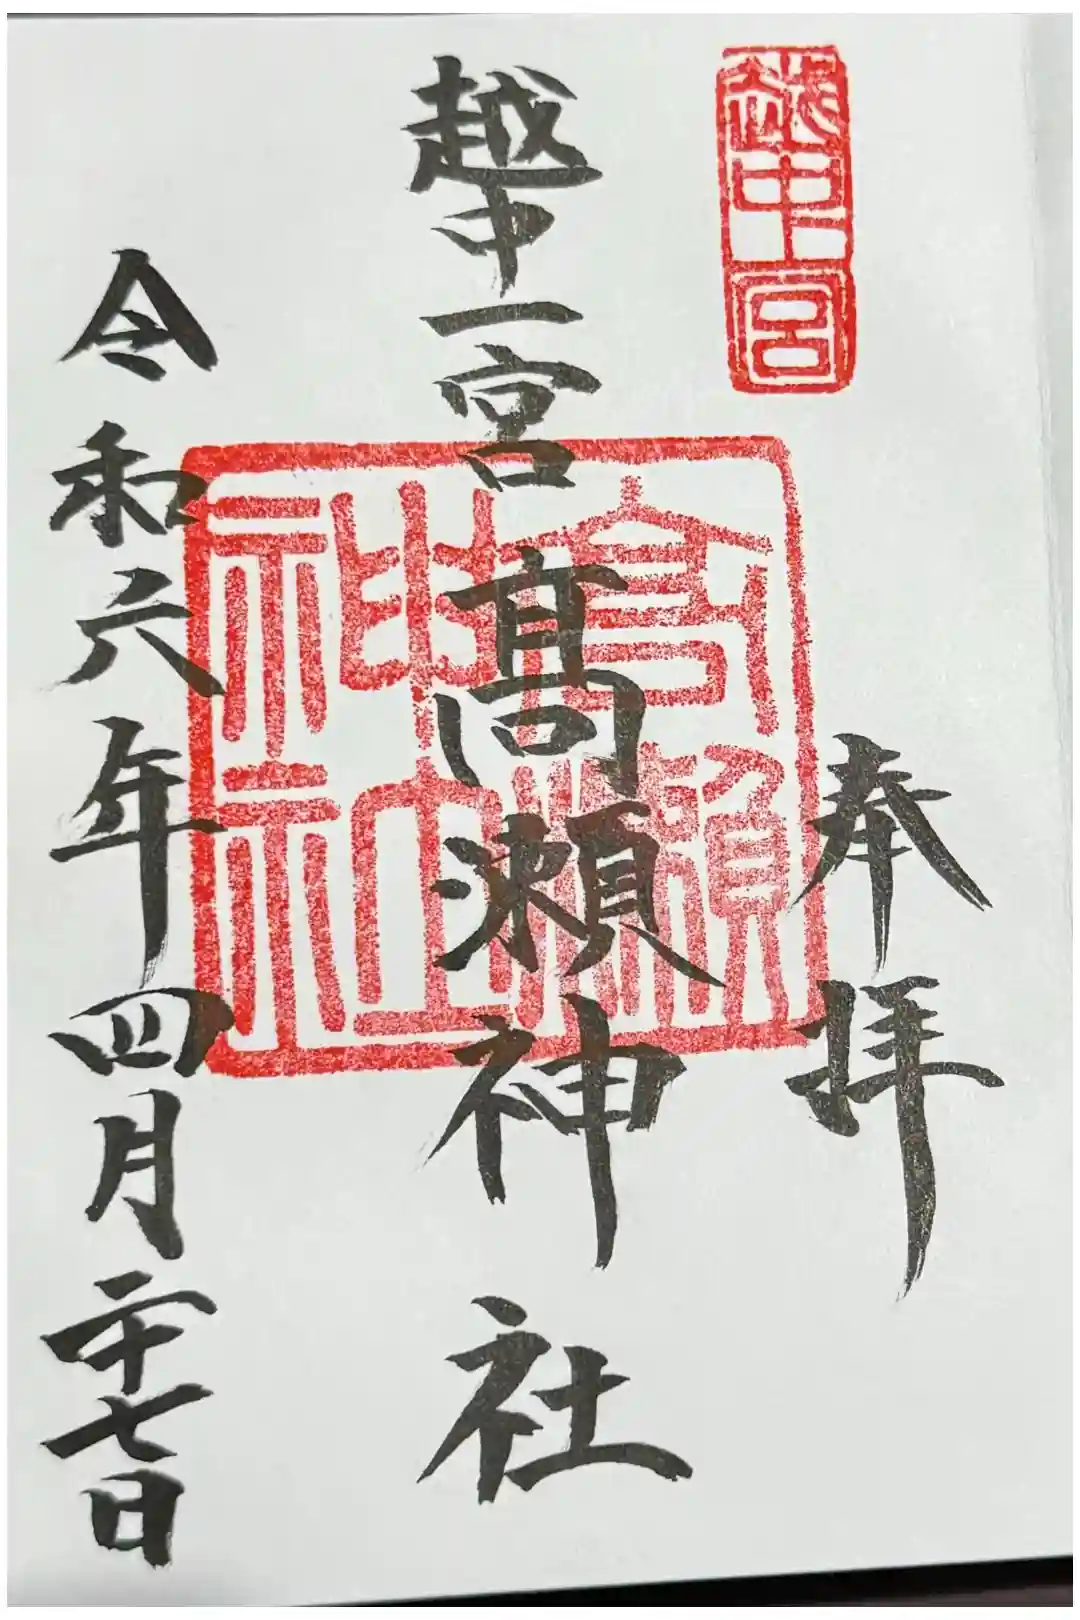 越中一宮
奉拝
越中一宮 髙瀬神社
高瀬
神社
令和六年四月二十七日